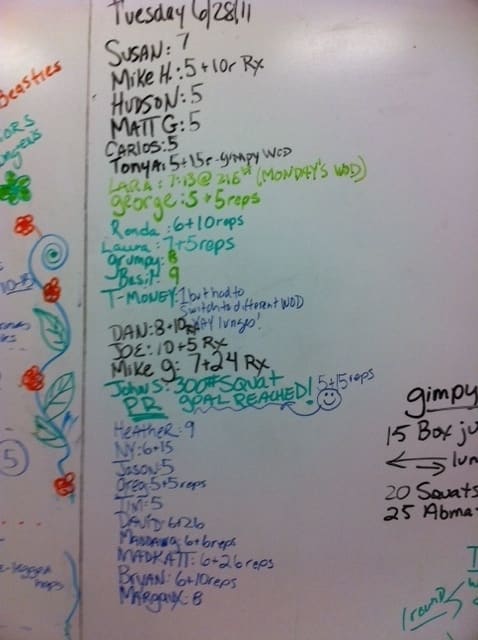 Tuesday 6/28/11
SUSAN: 7
MIKE H.: 5+10r Rx
HUDSON: 5
MATT G: 5
CARLOS: 5
TONYA: 5+15r-gimpy WOD
LARA: 7:13@ (MONDAY'S WOD)
george: 5+5reps
Ronda: 6+10reps
Laura: 7+5reps
grumpy: 8
Basil: 9
T-MONEY: 1 but had to
Switch to different WOD
YAY lunges!
DAN: 8+10 Rx
JOE: 10+5 Rx
Mike g: 7+24 Rx
John S: 300# Squat 5+15reps
PR GOAL REACHED!
HEATHER: 9
NY: 6+15
Jason: 5
Greg: 5+5reps
Tim: 5
DAVID: 6+26
6+6reps
MADKATT: 6+26reps
BRYAN: 6+10reps
Margaux: 8
Beasties
10-15
5
hops
gimpy
15 Box ju
lun
20 Squats
25 Abma
1 round